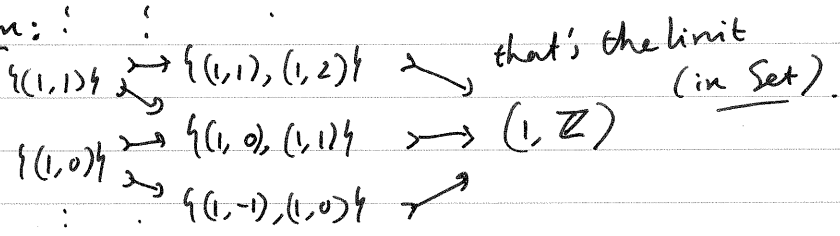 n:
{(1,1)} {(1,1),(1,2)} that's the limit
(in Set).
{(1,0),(1,1)} (1, ℤ)
{(1,0)}
{(1,-1),(1,0)}